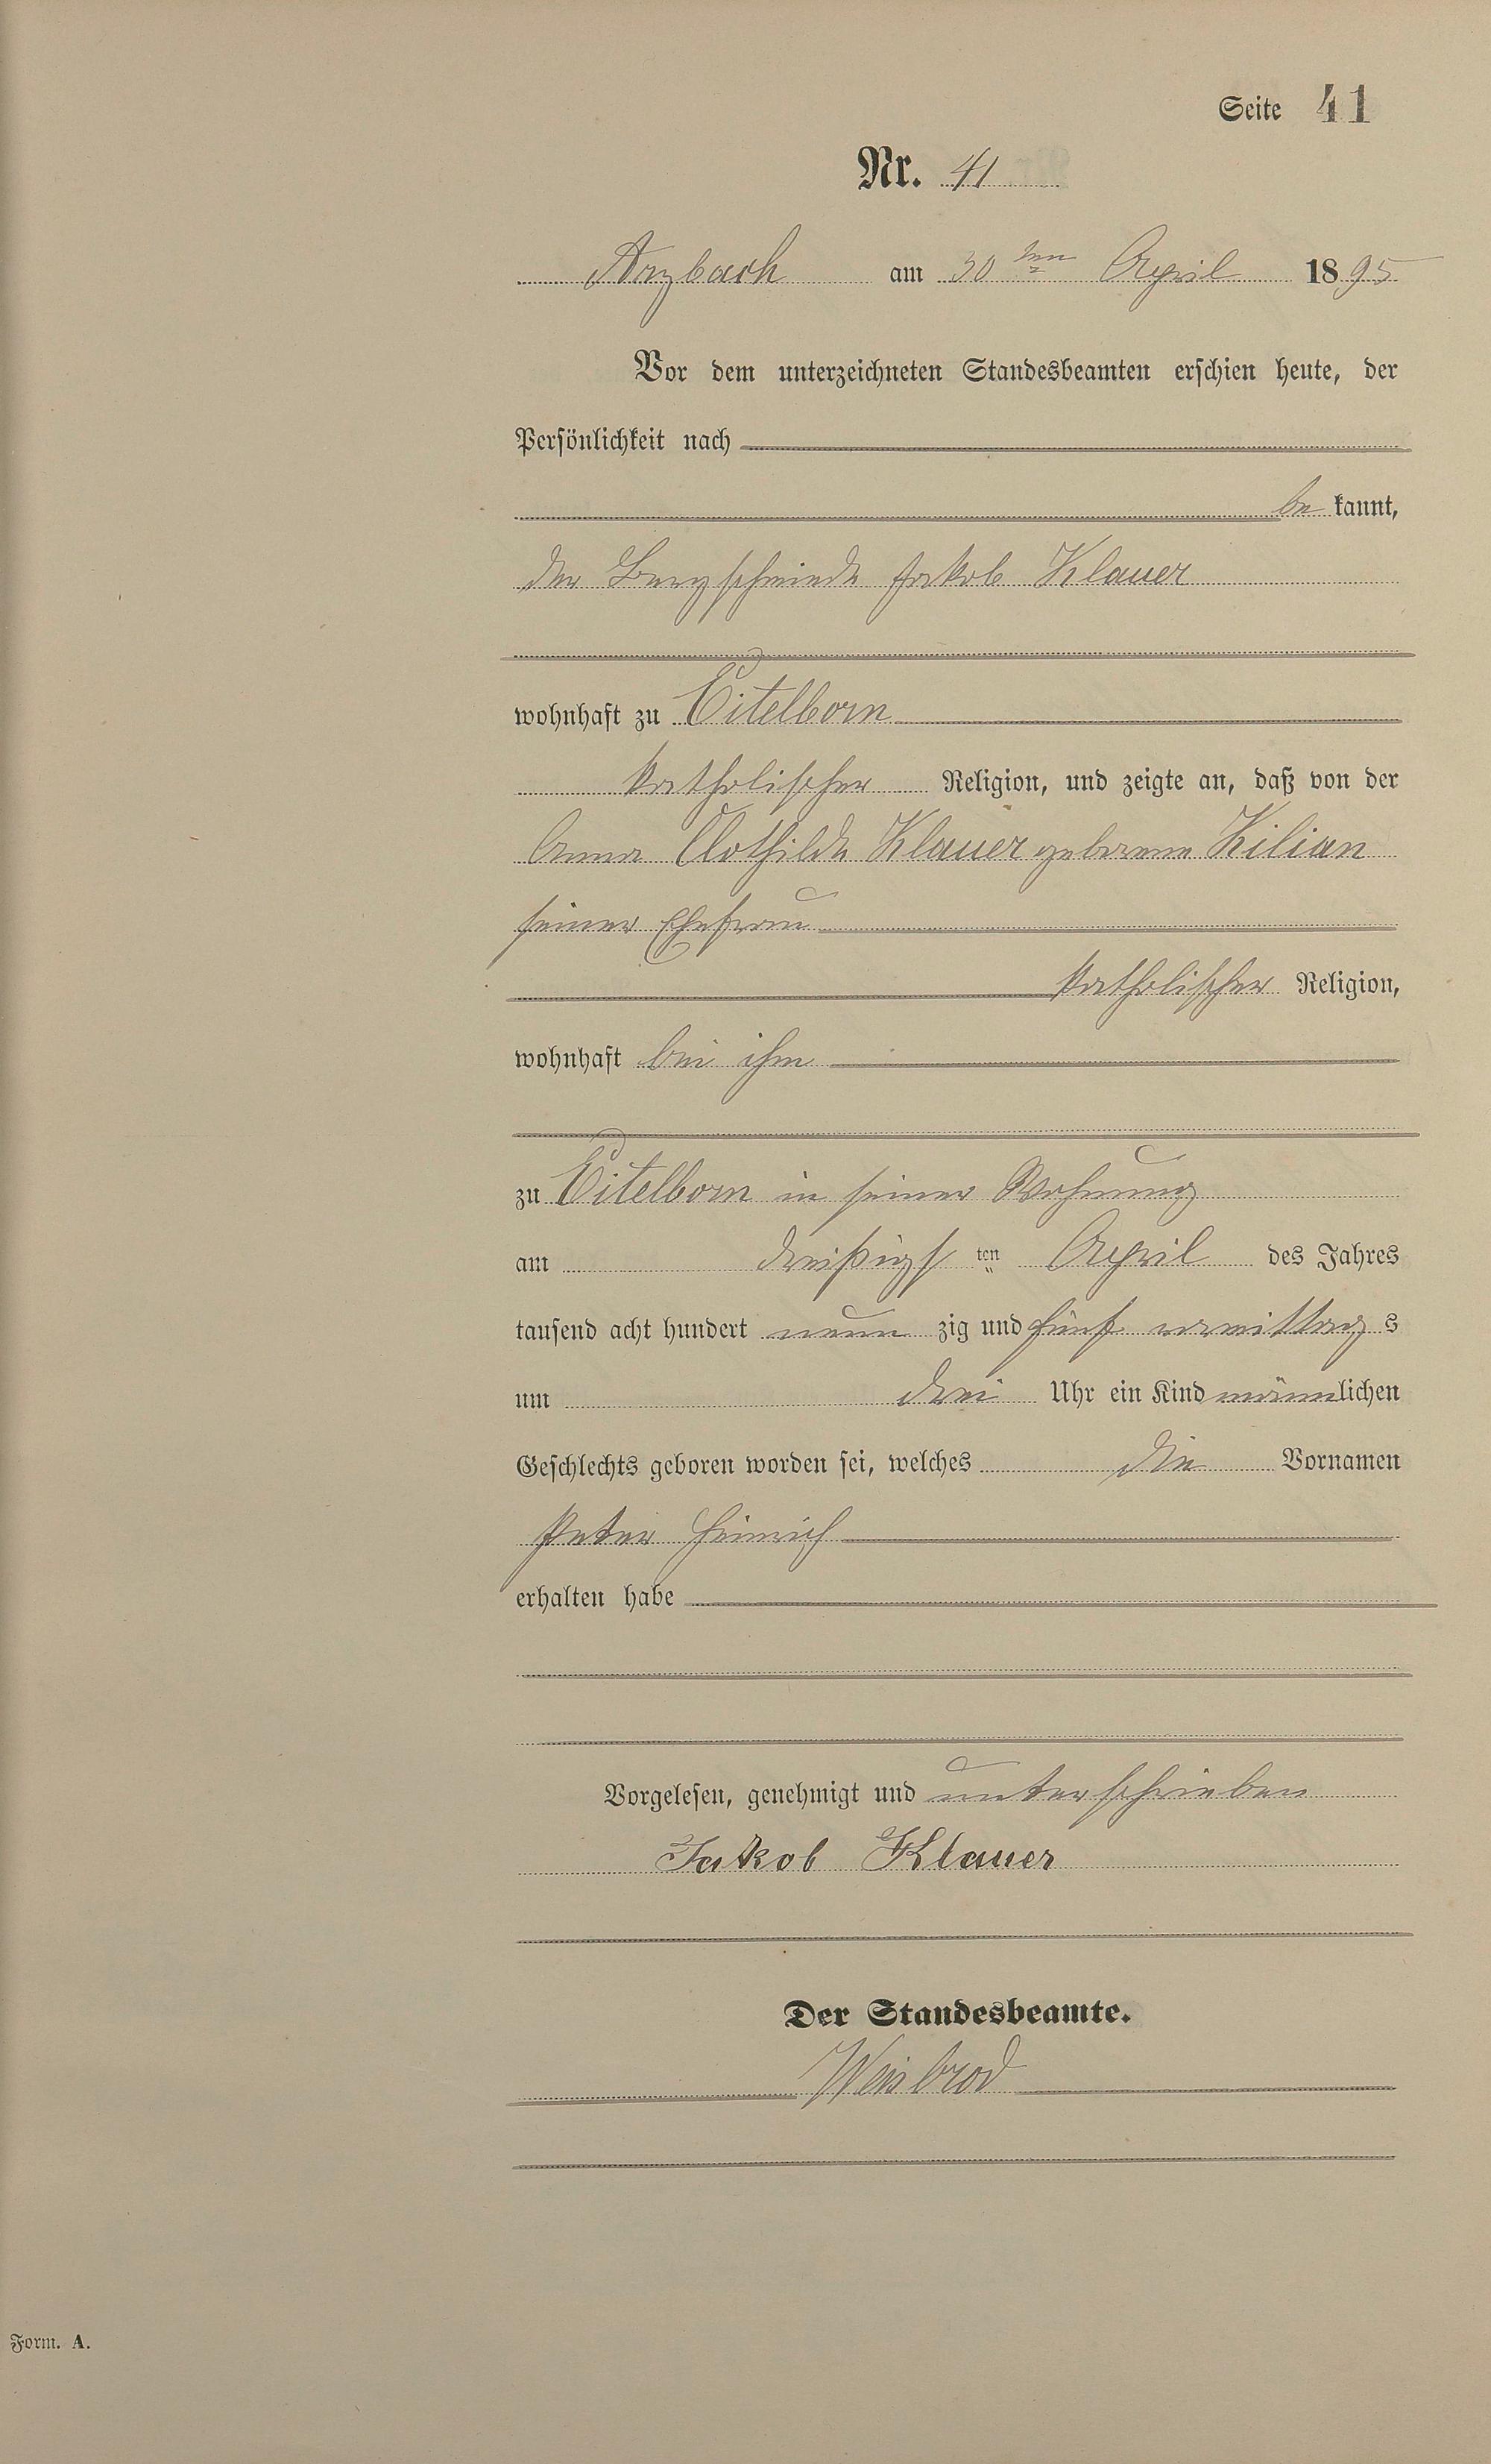 Seite 41
Nr. 41
Arzbach am 30ten April 1895
Vor dem unterzeichneten Standesbeamten erschien heute, der
Persönlichkeit nach
be kannt,
der Bergschmiede Jakob Klauer
wohnhaft zu Eitelborn
katholischer Religion, und zeigte an, daß von der
Anna Clothilde Klauer geborene Kilian
seiner Ehefrau
katholischer Religion,
wohnhaft bei ihm
zu Eitelborn in seiner Wohnung
am dreißigs ten April des Jahres
tausend acht hundert neun zig und fünf vormittag s
um drei Uhr ein Kind männlichen
Geschlechts geboren worden sei, welches die Vornamen
Peter Heinrich
erhalten habe
Vorgelesen, genehmigt und unterschrieben
Jakob Klauer
Der Standesbeamte.
Weisbrod
Form. A.